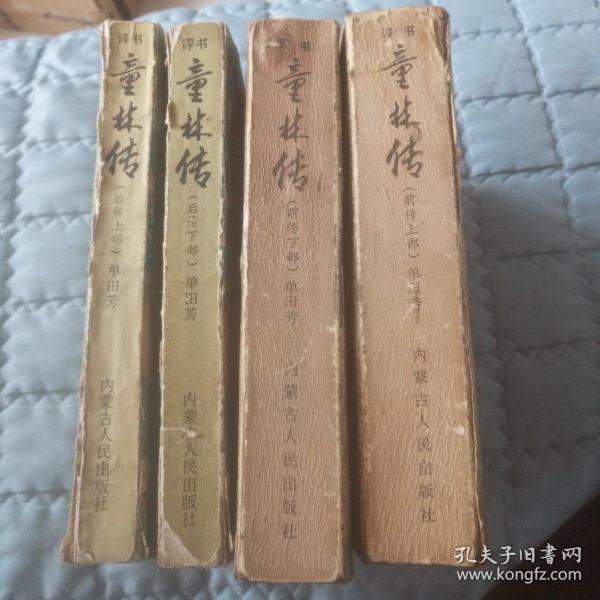 评书
童林传
(后传上部)
单田芳
内蒙古人民出版社
评书
童林传
(后传下部)
单田芳
内蒙古人民出版社
书
童林传
(前传下部)
单田芳
内蒙古人民出版社
评书
童林传
(前传上部)
单田芳
内蒙古人民出版社
孔夫子旧书网
www.kongfz.com